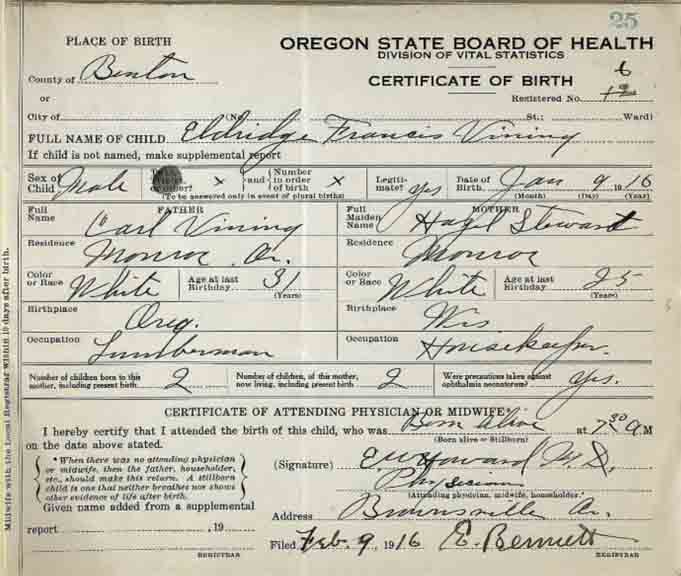 25
PLACE OF BIRTH
OREGON STATE BOARD OF HEALTH
DIVISION OF VITAL STATISTICS
County of Benton
CERTIFICATE OF BIRTH
6
or
Registered No. 12
City of (No. St.; Ward)
FULL NAME OF CHILD Eldridge Francis Vining
If child is not named, make supplemental report
Sex of Child Male or other? X and Number in order of birth X Legitimate? Yes Date of Birth. Jan 9 1916
(To be answered only in event of plural births) (Month) (Day) (Year)
FATHER MOTHER
Full Name Carl Vining Full Maiden Name Hazel Stewart
Residence Monroe Or. Residence Monroe
Color or Race White Age at last Birthday 31 (Years) Color or Race White Age at last Birthday 25 (Years)
Birthplace Oreg. Birthplace Wis
Occupation Lumberman Occupation Housekeeper
Number of children born to this mother, including present birth 2 Number of children, of this mother, now living, including present birth 2 Were precautions taken against ophthalmia neonatorum? Yes.
CERTIFICATE OF ATTENDING PHYSICIAN OR MIDWIFE*
I hereby certify that I attended the birth of this child, who was Born Alive at 7 30 A M
on the date above stated. (Born alive or Stillborn)
*When there was no attending physician
or midwife, then the father, householder,
etc., should make this return. A stillborn
child is one that neither breathes nor shows
other evidence of life after birth.
(Signature) E. W. Howard M. D.
Physician
(Attending physician, midwife, householder.*)
Given name added from a supplemental
report , 19
Address Brownsville Or.
Filed Feb. 9, 1916 E. Bennett
REGISTRAR REGISTRAR
Midwife with the Local Registrar within 10 days after birth.